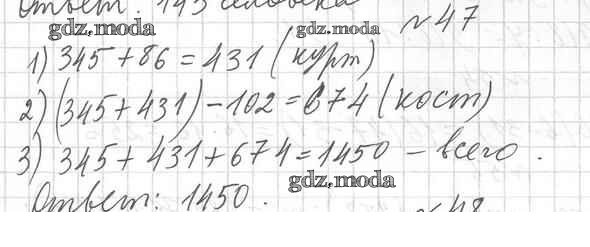 Ответ: 143 человека
gdz.moda gdz.moda № 47
1) 345 + 86 = 431 (курт)
2) (345 + 431) - 102 = 674 (кост)
3) 345 + 431 + 674 = 1450 - всего.
gdz.moda
Ответ: 1450.
№ 48